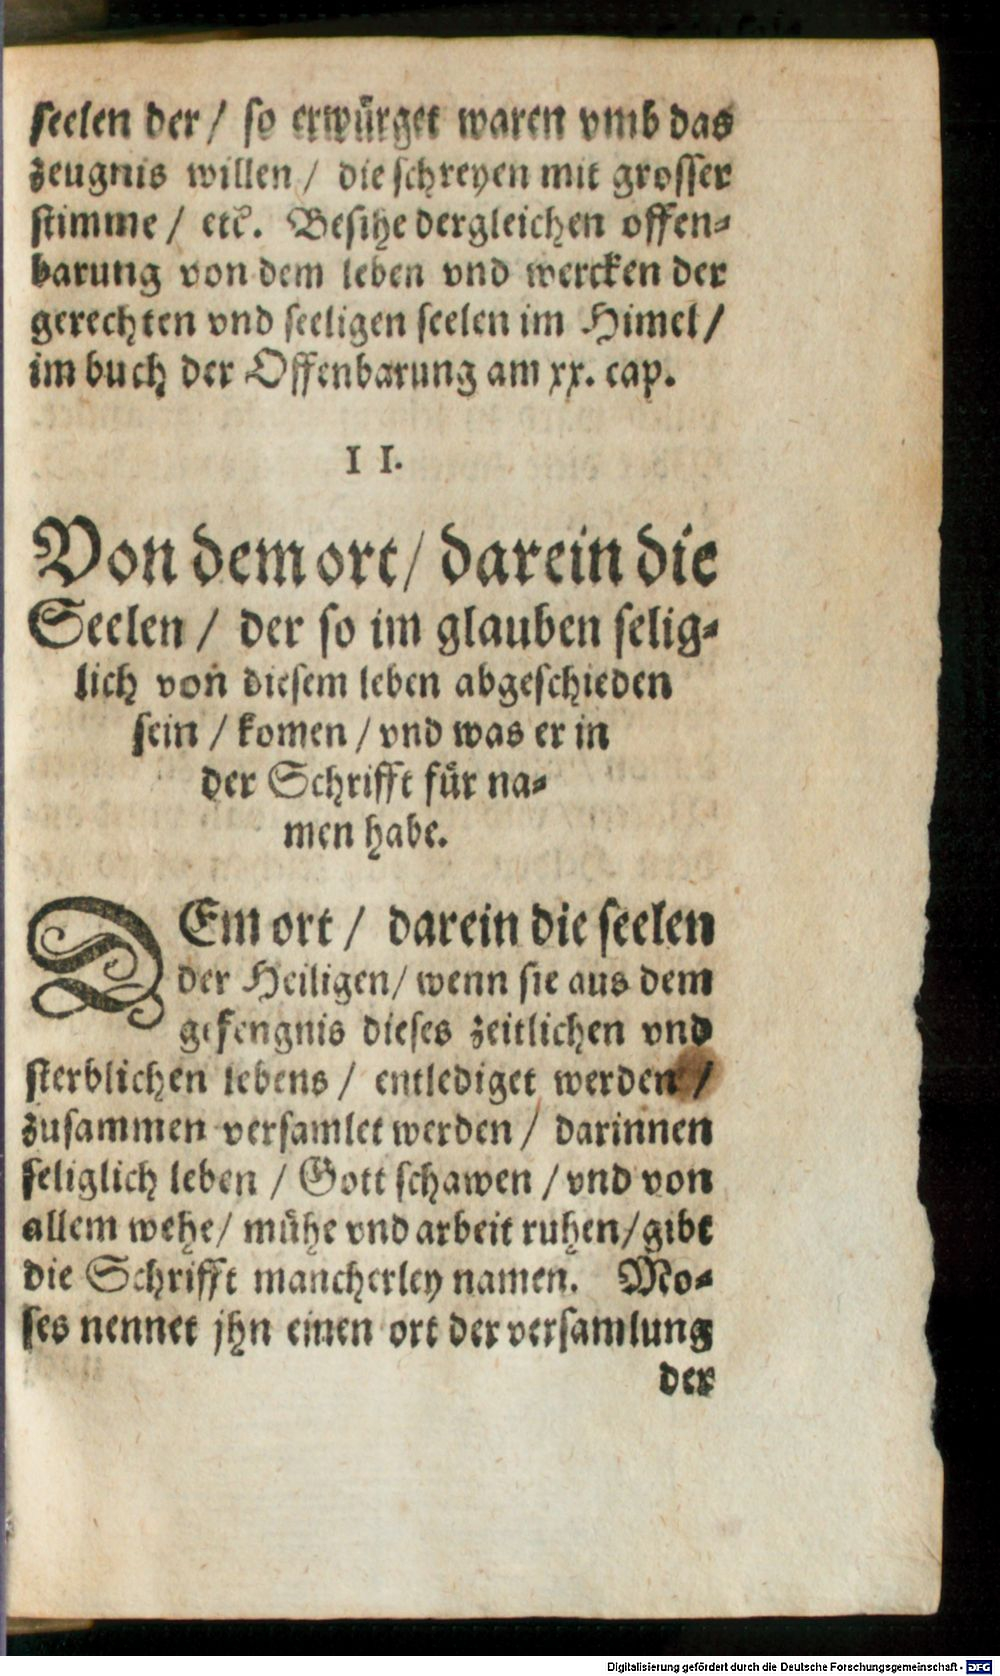 seelen der / so erwürget waren vmb das
zeugnis willen / die schreyen mit grosser
stimme / etc. Besihe dergleichen offen-
barung von dem leben vnd wercken der
gerechten vnd seeligen seelen im Himel /
im buch der Offenbarung am xx. cap.
I I.
Von dem ort / darein die
Seelen / der so im glauben selig-
lich von diesem leben abgeschieden
sein / komen / vnd was er in
der Schrifft für na-
men habe.
DEm ort / darein die seelen
der Heiligen / wenn sie aus dem
gefengnis dieses zeitlichen vnd
sterblichen lebens / entlediget werden /
zusammen versamlet werden / darinnen
seliglich leben / Gott schawen / vnd von
allem wehe / mühe vnd arbeit ruhen / gibt
die Schrifft mancherley namen. Mo-
ses nennet jhn einen ort der versamlung
der
Digitalisierung gefördert durch die Deutsche Forschungsgemeinschaft - DFG